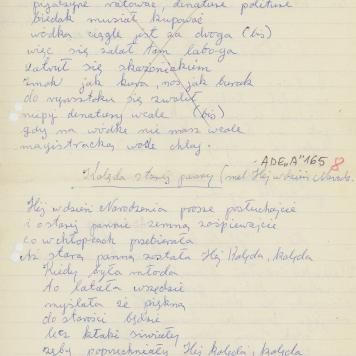 ratować, denaturę politurę
biedak musiał kupować
wódka ciągle jest za droga (bis)
więc się zalał tom łaboga
zatruł się skażeniakiem
zmok jak kura, nos jak burak
do rynsztoku się zwalił
niepij denatury wcale (bis)
gdy na wódke nie masz wcale
magistracką wode chlaj.
ADE „A" 165 8
Kolęda starej panny (mel. Hej w dzień Narodz.
Hej w dzień Narodzenia prosze posłuchajcie
i o starej pannie zemną zaśpiewajcie
co w chłopcach przebierała
Aż starą panną została Hej Kolęda, kolęda
Kiedy była młoda
to latała wszędzie
myślała że piękną
do starości będzie
lecz kłaki siwiały
zęby popruchniały Hej kolęda, kolęda